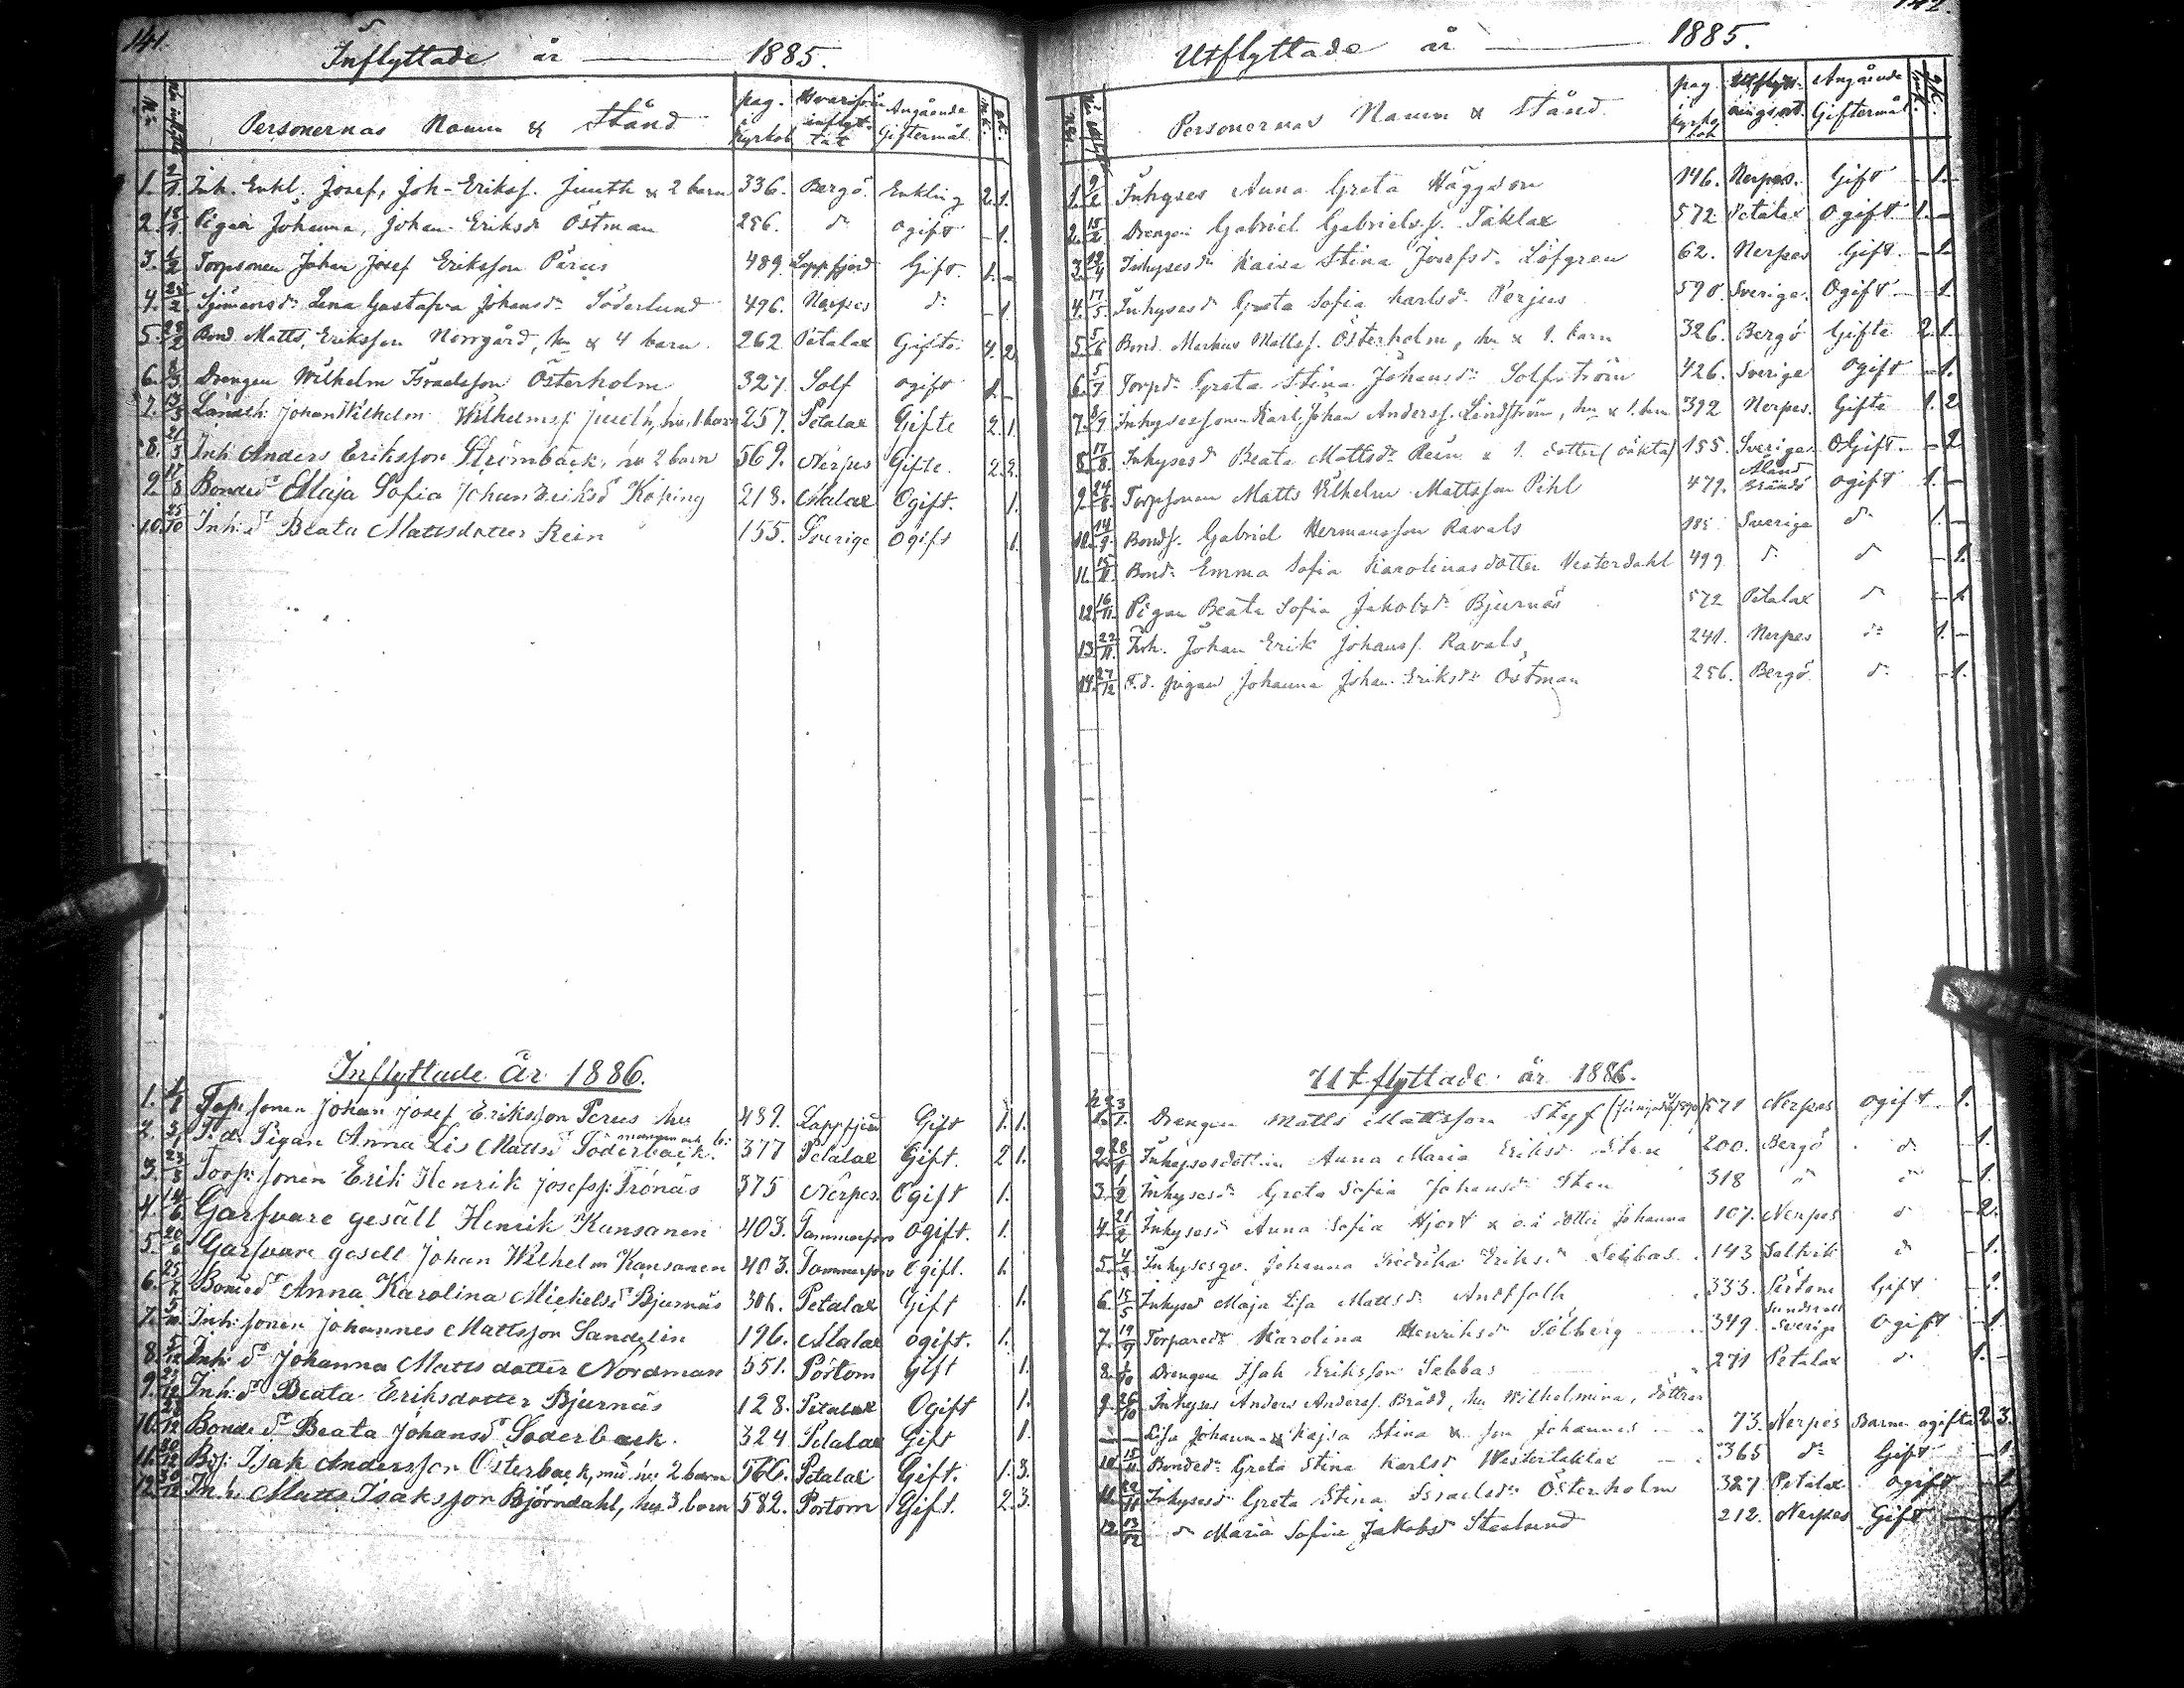 141.
Inflyttade år 1885.
N:o
Personernas Namn & Stånd
pag. Kyrkob.
Hvarifrån inflyt-tat
Angående Giftermål
1. 2/1. Inh. Enkl. Josef, Joh-Erikss. Juuth & 2 barn 336. Bergö. Enkling 2. 1.
2. 18/1. Pigan Johanna, Johan Eriksdr Östman 256. dr ogift - 1.
3. 1/2 Torpsonen Johan Josef Eriksson Perus 489. Lappfjerd Gift. 1. -
4. 22/2. Sjömansdr Lena Gustafva Johansdr Söderlund 496. Nerpes dr - 1.
5. 28/2 Bond. Matts, Eriksson Norrgård, hu & 4 barn. 262 Petalax Gifte. 4. 2
6. 8/3. Drengen Wilhelm Israelsson Österholm 327. Solf ogift 1. -
7. 13/3 Landth. Johan Wilhelm Wilhelmss. Juuth, hu. 1 barn 257. Petalax Gifte 2. 1.
8. 21/3 Inh. Anders Eriksson Strömbäck, hu 2 barn 569. Nerpes Gifte. 2. 2.
9. 17/8 Bondedr Maja Sofia Johan Eriksdr Köping 218. Malax Ogift. 1.
10. 25/10 Inh. dr Beata Mattsdotter Rein 155. Sverige Ogift 1.
Inflyttade År 1886.
1. 1/1 Torp. sonen Johan Josef Eriksson Perus hu 489. Lappfjerd Gift 1. 1.
2. 3/1 F. d. Pigan Anna Lis Mattsdr Söderback. 377 Petalax Gift. 2 1.
3. 23/3 Torp. sonen Erik Henrik Josefss. Frönäs 375 Nerpes Ogift 1.
4. 14/6 Garfvare gesäll Henrik Kansanen 403. Tammerfors Ogift. 1.
5. 20/6 Garfvare gesell Johan Wilhelm Kansanen 403. Tammerfors Ogift. 1.
6. 25/7 Bondedr Anna Karolina Mickelsdr Bjurnäs 306. Petalax Gift 1.
7. 5/10 Inh. sonen Johannes Mattsson Sandelin 196. Malax ogift. 1.
8. 5/12 Inh. dr Johanna Matts dotter Nordman 351. Pörtom Gift 1.
9. 27/12 Inh. dr Beata Eriksdotter Bjurnäs 128. Petalax Ogift 1.
10. 28/12 Bonde dr Beata Johansdr Söderback. 324 Petalax Gift 1.
11. 30/12 Bs. Isak Andersson Österback, med hu 2 barn 566. Petalax Gift. 1. 3.
12. 30/12 Inh. Matts Isaksson Björndahl, hu 3 barn 582. Pörtom Gift. 2. 3.
142.
Utflyttade år 1885.
Personernas Namn & Stånd
pag. kyrko bok
Utflytt-ningsort.
Angående Giftermål
1. 2/2 Inhyses Anna Greta Häggdon 146. Nerpes. Gift - 1. -
2. 15/2 Drengen Gabriel Gabrielss. Täklax 572. Petalax Ogift. 1. -
3. 12/4 Inhysesdr Kaisa Stina Josefsdr Löfgren 62. Nerpes Gift. - 1.
4. 17/5 Inhysesdr Greta Sofia Karlsdr Perjus 590. Sverige. Ogift - 1.
5. 5/6 Bond. Markus Mattss. Österholm, hu & 1. barn 326. Bergö Gifte 2. 1.
6. 5/7 Torpdr Greta Stina Johansdr Solfström 426. Sverige Ogift - 1.
7. 8/7 Inhysessonen Karl Johan Anderss. Lindström, hu & 1. barn 392 Nerpes. Gifte 1. 2
8. 17/8. Inhysesdr Beata Mattsdr Rein & 1. dotter (oäkta) 155. Sverige. Ogift. - 2
9. 24/8. Torpsonen Matts Vilhelm Mattsson Pihl 479. Åland Brändö ogift 1. -
10. 14/9. Bonds. Gabriel Hermansson Ravals 185 Sverige dr 1. -
11. 15/11 Bond. Emma Sofia Karolinasdotter Westerdahl 499 dr dr - 1.
12. 16/11. Pigan Beata Sofia Jakobsdr Bjurnäs 572 Petalax dr - 1.
13. 22/11. Inh. Johan Erik Johanss. Ravals 241. Nerpes dr 1. -
14. 27/12 F.d. pigan Johanna Johan Eriksdr Östman 256. Bergö dr - 1.
Utflyttade år 1886.
1. 3/1. Drengen Matts Mattsson Styf 571 Nerpes ogift 1.
2. 28/1 Inhysesdottern Anna Maria Eriksdr Sten 200. Bergö dr - 1.
3. 1/2 Inhysesdr Greta Sofia Johansdr Sten 318 " " - 1.
4. 21/2 Inhysesdr Anna Sofia Hjort & o.ä. dotter Johanna 107. Nerpes dr - 2.
5. 4/3 Inhysesqv. Johanna Fredrika Eriksdr Lebbas 143 Saltvik dr - 1.
6. 15/5 Inhysdr Maja Lisa Mattsdr Antfolk 333. Pörtom Gift - 1.
7. 19/9 Torparedr Karolina Henriksdr Sölberg 349. Sundsvall Sverige Ogift - 1
8. Drengen Isak Eriksson Sabbas 271 Petalax dr 1. -
9. 26/10 Inhyses Anders Anderss. Brådd, hu Wilhelmina, döttrar
Lisa Johanna & Kajsa Stina & son Johannes 73. Nerpes Barnen ogifta 2. 3.
10. 15/11 Bondedr Greta Stina Karlsdr Westertaklax 365 dr Gift - 1
11. 22/11 Inhysesdr Greta Stina Israelsdr Österholm 327. Petalax ogift - 1
12. 13/12 dr Maria Sofia Jakobsdr Stenlund 212. Nerpes Gift - 1